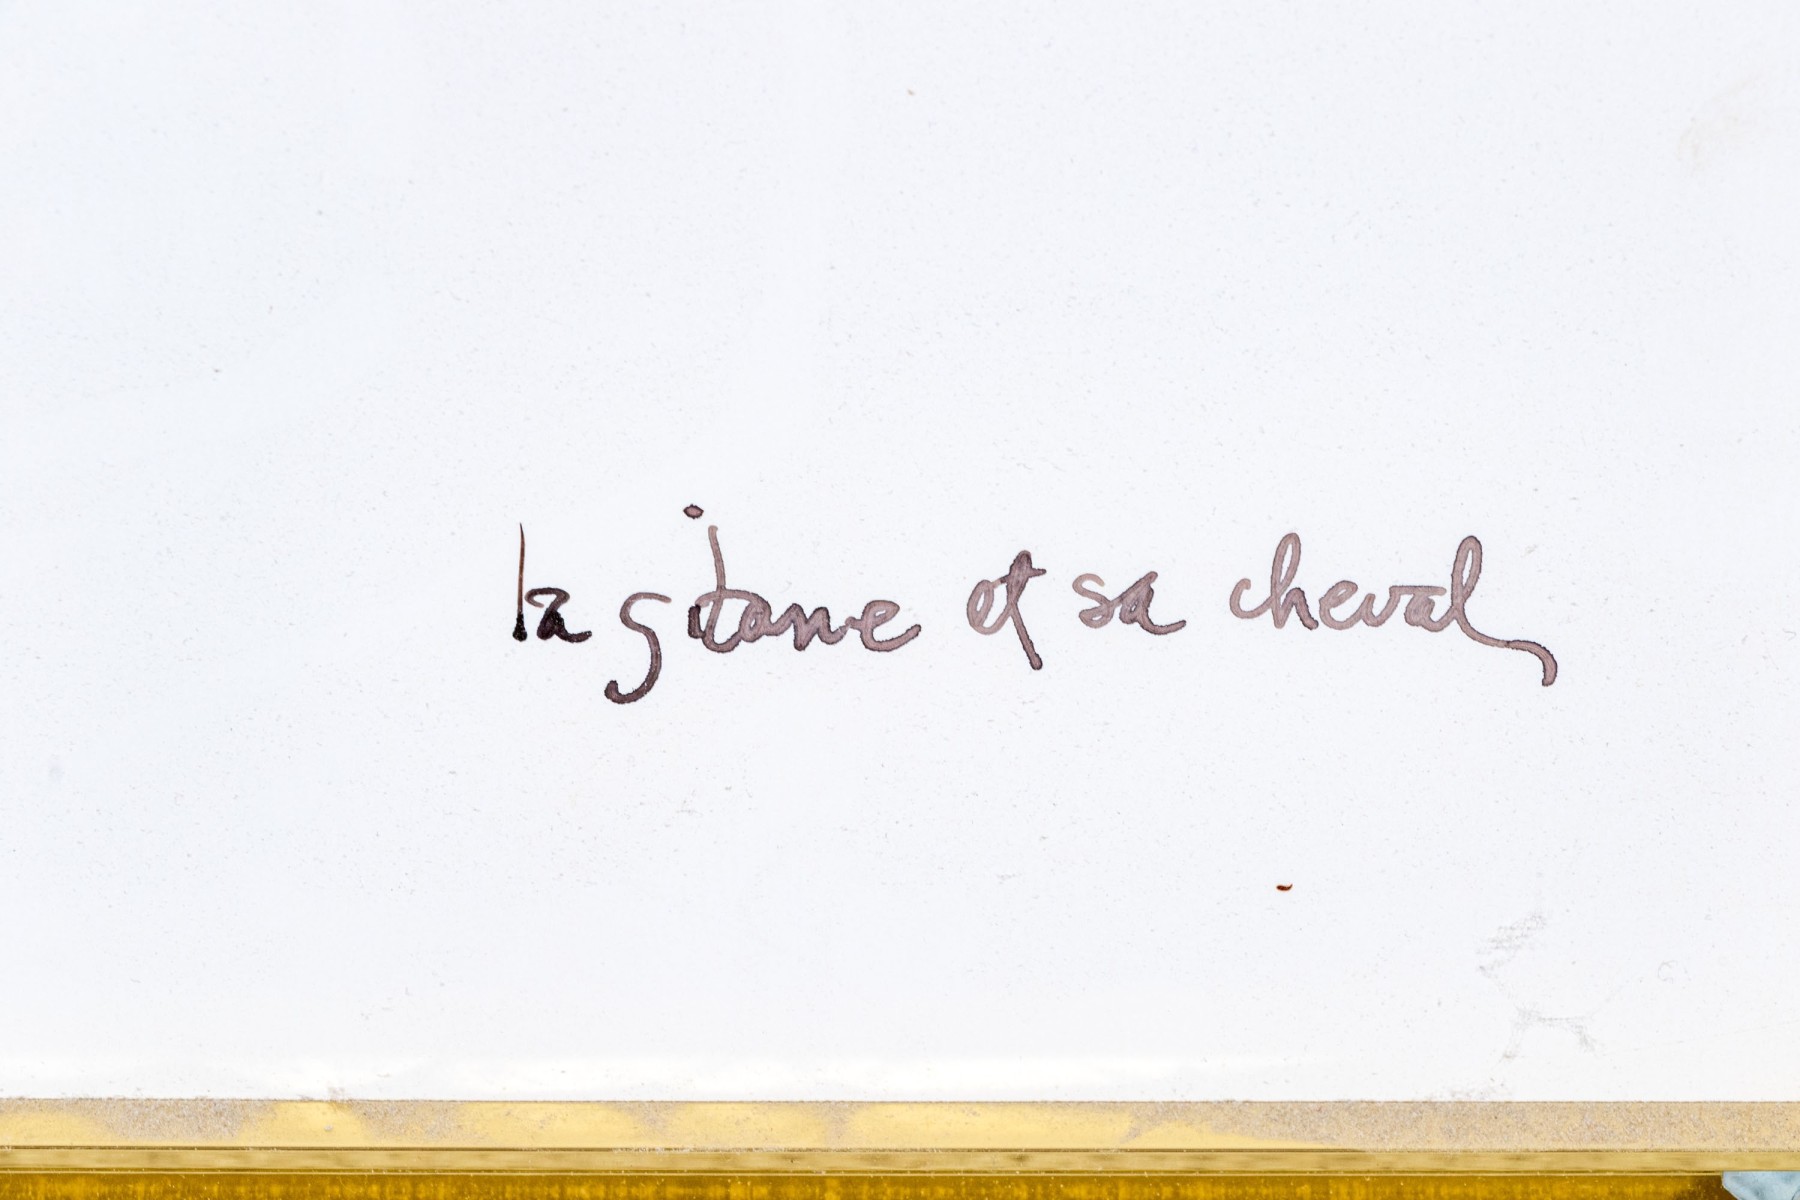 la gitane et sa cheval